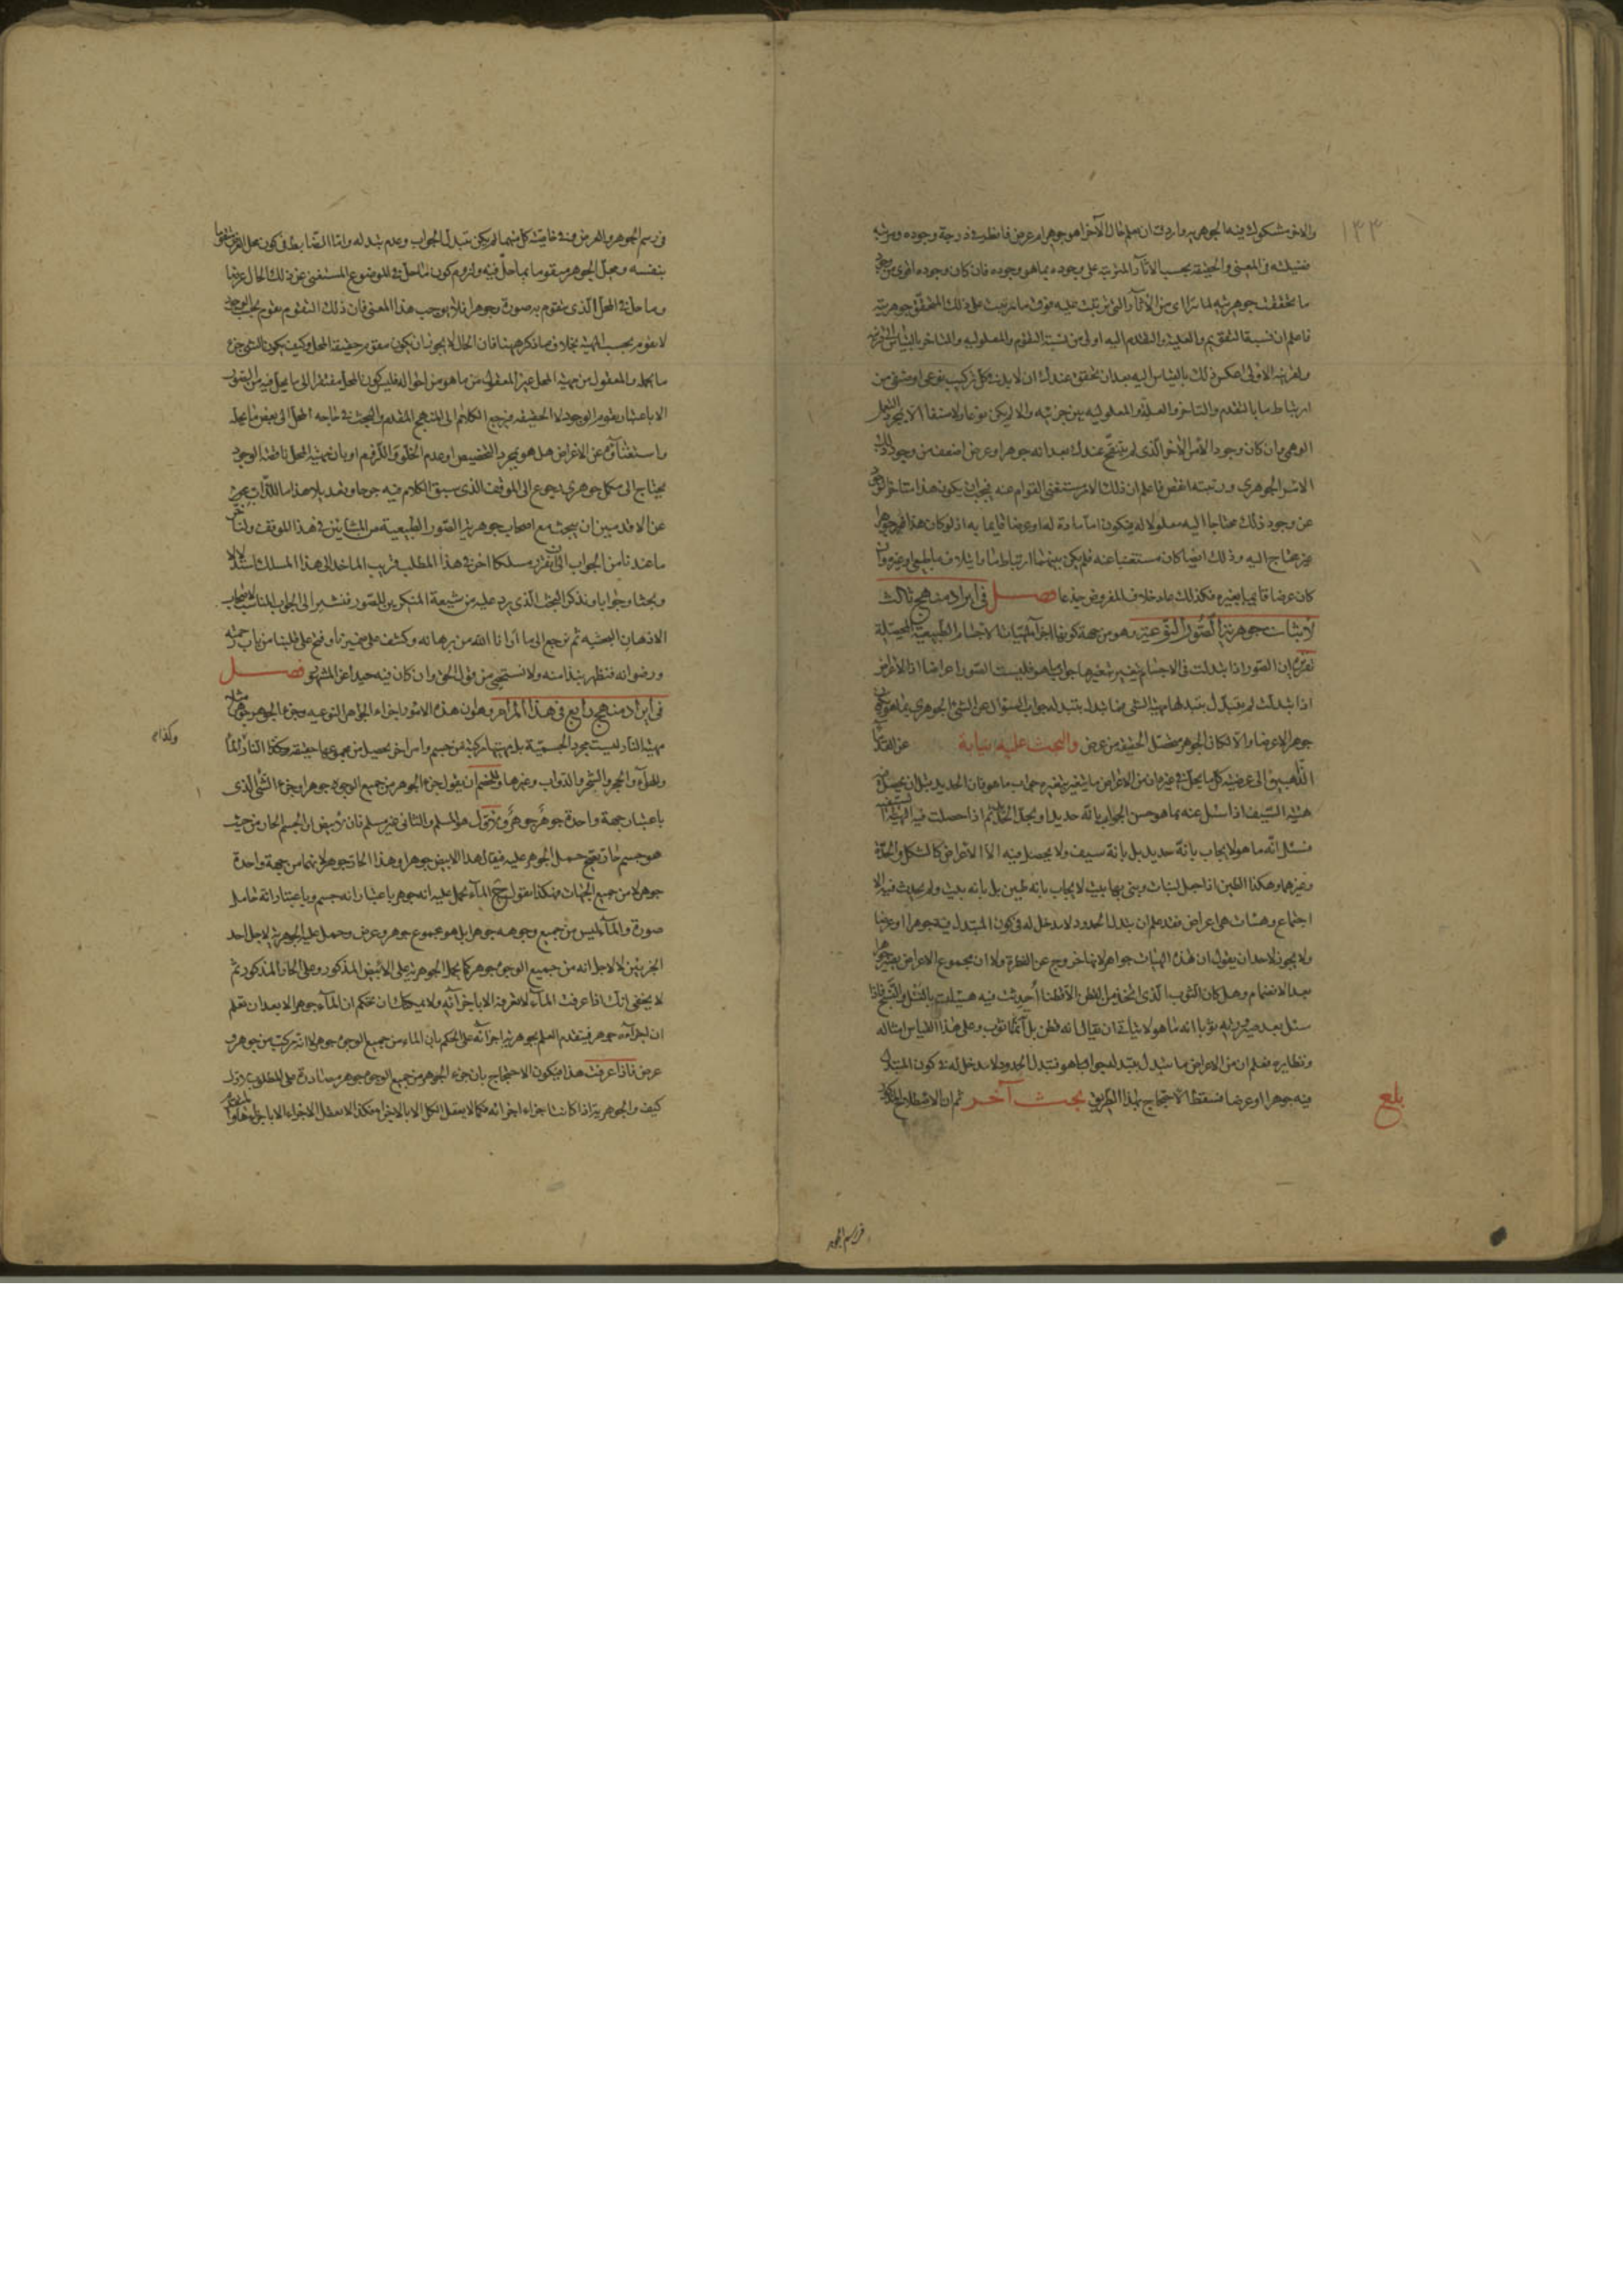 ١٣٣
والاخر مشكوك فيه الجوهرية واردت ان تعلم حال الآخر اهو جوهر ام عرض فانظر في درجة وجوده ومرتبة
فضيلته في المعنى والحقيقة بحسب الآثار المترتبة على وجوده بما هو وجوده فان كان وجوده اقوى من وجود
ما تحققت جوهريته لما ترى من الآثار التي ترتبت عليه فوق ما ترتبت على ذلك المتحقق جوهريته
فاعلم ان نسبة التقويم والعلية والتقدم اليه اولى من نسبة التقوم والمعلولية والتاخر بالقياس الى قرينه
ولقرينه الاولى عكس ذلك بالقياس اليه بعد ان تحقق عندك ان لا بد في كل تركيب نوعي او صنفي من
ارتباط ما بالتقدم والتاخر والعلية والمعلولية بين جزئيه والا لم يكن نوعا ولا صنفا الا بمجرد العمل
الوهمي وان كان وجود الامر الآخر الذي لم يتنقح عندك بعد انه جوهر او عرض اضعف من وجود ذلك
الامر الجوهري ورتبته انقص فاعلم ان ذلك الامر مستغني القوام عنه فيجب ان يكون هذا متاخر الوجود
عن وجود ذلك محتاجا اليه معلولا له فيكون اما مادة له او عرضا قائما به اذ لو كان هذا جوهرا
غير محتاج اليه وذلك ايضا كان مستغنيا عنه فلم يكن بينهما ارتباط ما وايتلاف ما طبيعي او غيره وان
كان عرضا قائما بغيره فكذلك عاد خلاف المفروض جذعا فصل في ايراد منهج ثالث
لاثبات جوهرية الصور النوعية وهو من جهة كونها اجزاء لمهيات الاجسام الطبيعية المحصلة
تقريره ان الصور اذا تبدلت في الاجسام يتغير بتغيرها جواب ما هو فليست الصور اعراضا اذ الاعراض
اذا تبدلت لم يتبدل بتبدلها مهية الشيء فما تبدل بتبدله جواب السؤال عن الشيء الجوهري بما هو يكون
جوهرا لا عرضا والا لكان الجوهر متحصل الحقيقة من عرض والبحث عليه بنيابة عن القدماء
الذاهبين الى عرضية كل ما يحل في غيره ان من الاعراض ما يتغير بتغيره جواب ما هو فان الحديد مثلا ان يحصل فيه
هيئة السيف اذا سئل عنه بما هو حسن الجواب بانه حديد او بحد الحديد ثم اذا حصلت فيه الهيئة السيفية
فسئل انه ما هو لا يجاب بانه حديد بل بانه سيف ولا يحصل فيه الا الاعراض كالشكل والحدة
وغيرهما وهكذا الطين اذا جعل لبنات وبني بها بيت لا يجاب بانه طين بل بانه بيت ولم يحدث فيه الا
اجتماع وهيئات هي اعراض فقد علم ان تبدل الحدود لا مدخل له في كون المتبدل فيه جوهرا او عرضا
ولا يجوز لاحد ان يقول ان هذه الهيئات جواهر لانها خروج عن الفطرة ولا ان مجموع الاعراض يصير جوهرا
بعد الانضمام وهل كان الثوب الذي اتخذ من القطن الا قطنا احدثت فيه هيئات بالفتل والنسج فاذا
سئل بعد صيرورته ثوبا انه ما هو لا يتاتى ان يقال انه قطن بل انما ثوب وعلى هذا القياس امثاله
ونظايره فعلم ان من الاعراض ما يتبدل بتبدله جواب ما هو فتبدل الحدود لا مدخل له في كون المتبدل
فيه جوهرا او عرضا فسقط الاحتجاج بهذا الطريق بحث آخر ثم ان الاصطلاح
بلغ
في رسم الجوهر
في رسم الجوهر والعرض وفي خاصية كل منهما لم يكن تبدل الجواب وعدم تبدله واما الضابط في كون محل العرض متقوما
بنفسه ومحل الجوهر متقوما بما حل فيه ولزوم كون ما حل في الموضوع المستغني عن ذلك الحال عرضا
وما حل في المحل الذي يتقوم به صورة وجوهرا فلا يوجب هذا المعنى فان ذلك التقوم تقوم بحسب الوجود
لا تقوم بحسب المهية بخلاف ما ذكر ههنا فان الحال لا يجوز ان يكون مقوم حقيقة المحل وكيف يكون الشيء جزء
ما يحله والمعقول من مهية المحل غير المعقول من ما هو من احواله فليس كون المحل مفتقرا الى ما يحل فيه من الصور
الا باعتبار تقومه الوجود لا الحقيقة فيرجع الكلام الى المنهج المقدم والبحث في حاجة المحل الى بعض ما يحله
واستغنائه عن الاعراض هل هو بمجرد التخصيص او عدم الخلو واللزوم او بان مهية المحل ناقصة الوجود
يحتاج الى مكمل جوهري رجوع الى الموقف الذي سبق الكلام فيه جرحا وتعديلا هذا ما للذاب بحث
عن الاقدمين ان يبحث مع اصحاب جوهرية الصور الطبيعية من المشائين في هذا الموقف ولنا
ما عندنا من الجواب الى ان نقرر مسلكا آخر في هذا المطلب قريب الماخذ الى هذا المسلك استدلالا
وبحثا وجوابا ونذكر البحث الذي يرد عليه من شيعة المنكرين للصور فنشير الى الجواب المناسب لاصحاب
الاذهان البحثية ثم نرجع الى ما ارانا الله من برهانه وكشف على ضميرنا وفتح على قلبنا من باب رحمته
ورضوانه فنظهر نبذا منه ولا نستحيي من قول الحق وان كان فيه حيد عن المشهور فصل
في ايراد منهج رابع في هذا المرام وهو ان هذه الامور اجزاء الجواهر النوعية وجزء الجوهر جوهر مثلا
مهية النار ليست مجرد الجسمية بل مهيتها مركبة من جسم وامر آخر يحصل من مجموعهما حقيقة وكذا الماء
والهواء والحجر والشجر والدواب وغيرها وللخصم ان يقول جزء الجوهر من جميع الوجوه جوهر او جزء الشيء الذي
باعتبار جهة واحدة جوهر جوهر الاول هو المسلم والثاني غير مسلم فان الابيض ان الجسم الحار من حيث
هو جسم حار يصح حمل الجوهر عليه فيقال هذا الابيض جوهر او هذا الحار جوهر لانهما من جهة واحدة
جوهر لا من جميع الجهات فهكذا نقول ح الماء يحمل عليه انه جوهر باعتبار انه جسم وباعتبار انه حامل
صورة والماء ليس من جميع وجوهه جوهرا بل هو مجموع جوهر وعرض وحمل عليه الجوهرية لاجل احد
الجزئين لا لاجل انه من جميع الوجوه جوهر كما يحمل الجوهرية على الابيض المذكور وعلى الحار المذكور ثم
لا يخفى انك اذا عرفت الماء لا تعرفه الا باجزائه ولا يمكنك ان تحكم ان الماء جوهر الا بعد ان تعلم
ان اجزاءه جوهر فيتقدم العلم بجوهرية اجزائه على الحكم بان الماء من جميع الوجوه جوهر لا انه مركب من جوهر و
عرض فاذا عرفت هذا فيكون الاحتجاج بان جزء الجوهر من جميع الوجوه جوهر مصادرة على المطلوب الاول
كيف والجوهرية اذا كانت اجزاء اجزائه فكما لا يعقل الكل الا بالاجزاء فكذا لا يعقل الاجزاء الا باجزائها
وكذا